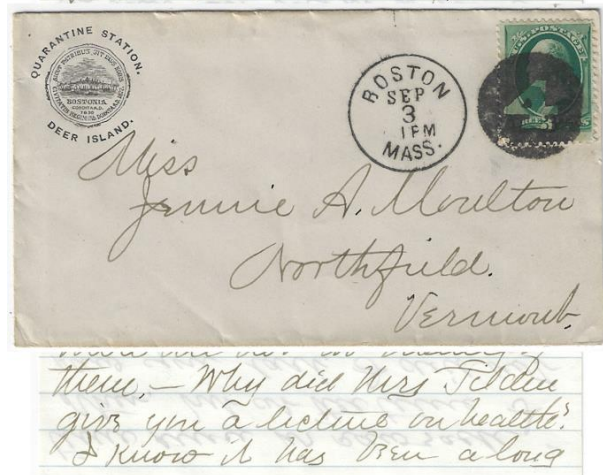 QUARANTINE STATION.
BOSTONIA.
CONDITA A.D.
1630
DEER ISLAND.
BOSTON
SEP
3
1 PM
MASS.
U.S. POSTAGE
Miss
Jennie A. Moulton
Northfield.
Vermont.
them, — Why did Mrs Tilden
give you a lecture on health?
I know it has been a long